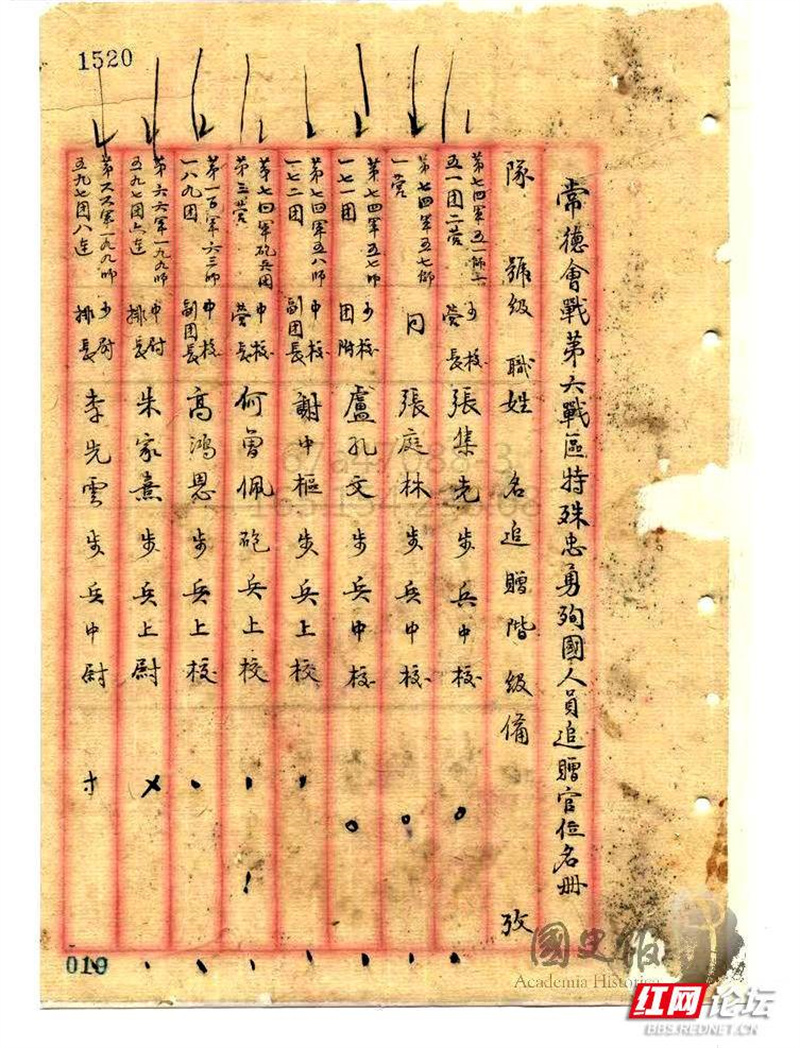 1520
常德會戰第六戰區特殊忠勇殉國人員追贈官位名册
隊號級職姓名追贈階級備攷
第七四軍五一師一五一团二营 少校营長 張集先 步兵中校
第七四軍五七師一营 同 張庭林 步兵中校
第七四軍五七師一七一团 少校团附 盧孔文 步兵中校
第七四軍五八師一七二团 中校副团長 謝中樞 步兵上校
第七四軍砲兵团第三营 中校营長 何曾佩 砲兵上校
第一百軍六三師一八九团 中校副团長 高鴻恩 步兵上校
第六六軍一九九師五九七团六連 中尉排長 朱家熹 步兵上尉
第六六軍一九九師五九七团八連 少尉排長 李先雲 步兵中尉
010
國史館
Academia Historica
红网论坛
BBS.REDNET.CN